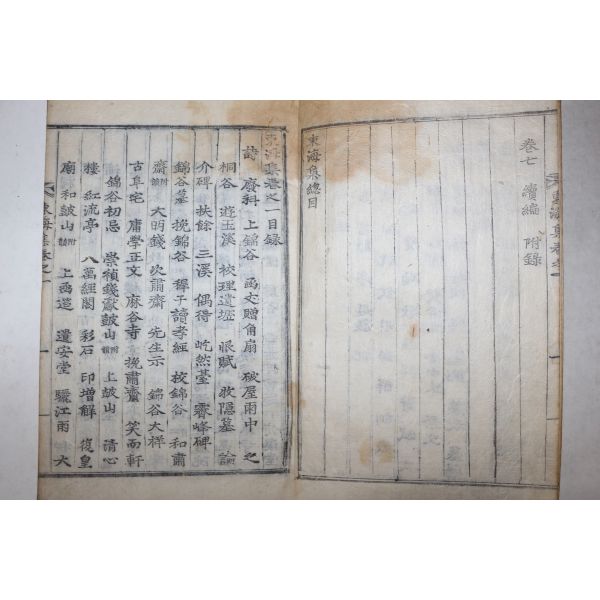 卷七 續編 附錄
東海集總目
東海集卷之一目錄
詩 廢科 上錦谷 函丈贈角扇 破屋雨中 之
桐谷 遊玉溪 校理遺墟 眼賦 牧隱墓 論
介碑 扶餘 三溪 偶得 屹然臺 霽峰碑
錦谷墓 挽錦谷 稺子讀孝經 挍錦谷 和肅
齋 大明錢 次肅齋 先生示 錦谷大祥
古阜宅 庸學正文 麻谷寺 挽肅齋 笑而軒
錦谷初忌 崇禎錢獻皷山 上皷山 清心
樓 紅流亭 八萬經閣 彩石 印增解 復皇
廟 和皷山 上西巡 遺安堂 驪江雨 大
東海集卷之一